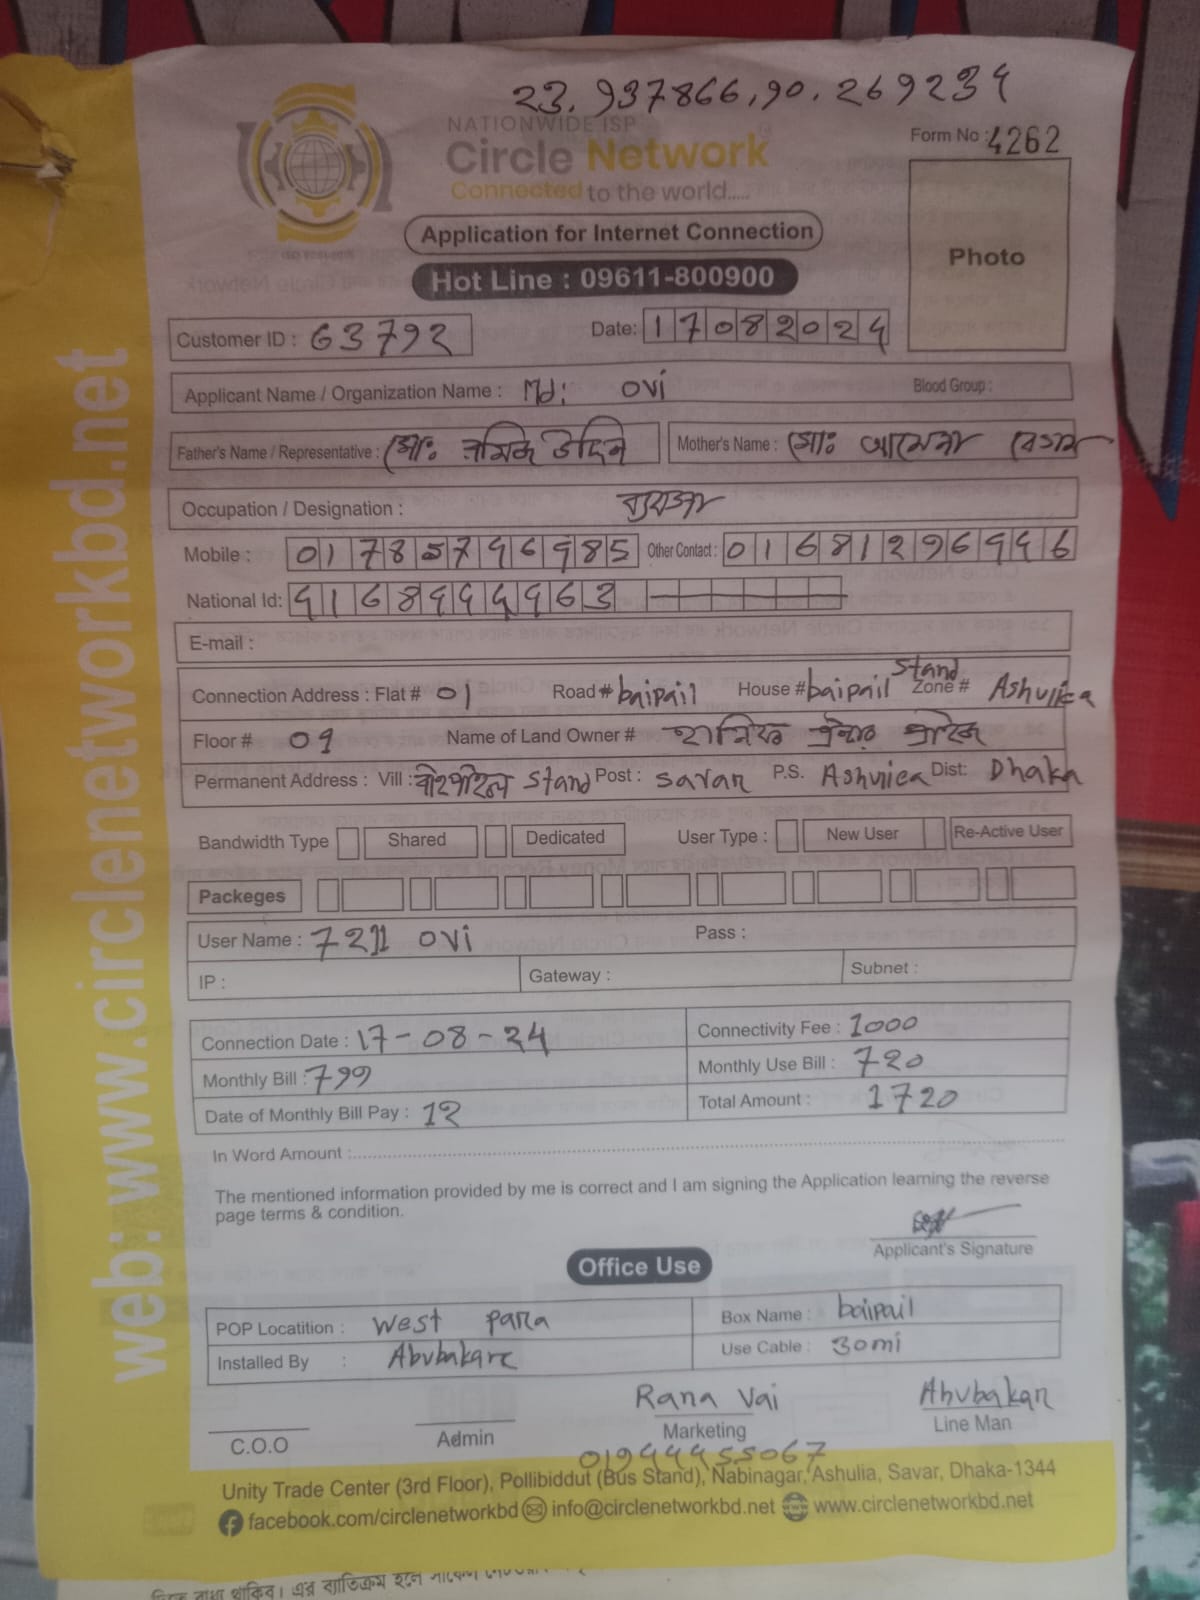 23.937866,90.269234
NATIONWIDE ISP
Circle Network
Connected to the world.....
Form No : 4262
Application for Internet Connection
Photo
Hot Line : 09611-800900
Customer ID : 63792 Date: 17082024
Applicant Name / Organization Name : Md: ovi Blood Group :
Father's Name / Representative : মোঃ উদ্দিন Mother's Name : মোঃ আমেনা বেগম
Occupation / Designation :
Mobile : Other Contact :
National Id:
E-mail :
Connection Address : Flat # 01 Road # baipail House # baipail Stand Zone # Ashuiica
Floor # 09 Name of Land Owner #
Permanent Address : Vill : Stand Post : savar P.S. Ashuiica Dist: Dhaka
Bandwidth Type Shared Dedicated User Type : New User Re-Active User
Packeges
User Name : 7211 ovi Pass :
IP : Gateway : Subnet :
Connection Date : 17-08-24 Connectivity Fee : 1000
Monthly Bill : 799 Monthly Use Bill : 720
Date of Monthly Bill Pay : 12 Total Amount : 1720
In Word Amount :
The mentioned information provided by me is correct and I am signing the Application learning the reverse
page terms & condition.
Applicant's Signature
Office Use
POP Locatition : West para Box Name : baipail
Installed By : Abubakare Use Cable : 30mi
Rana Vai Abubakar
C.O.O Admin Marketing Line Man
Unity Trade Center (3rd Floor), Pollibiddut (Bus Stand), Nabinagar, Ashulia, Savar, Dhaka-1344
facebook.com/circlenetworkbd info@circlenetworkbd.net www.circlenetworkbd.net
web: www.circlenetworkbd.net
থাকিব। এর ব্যতিক্রম হলে